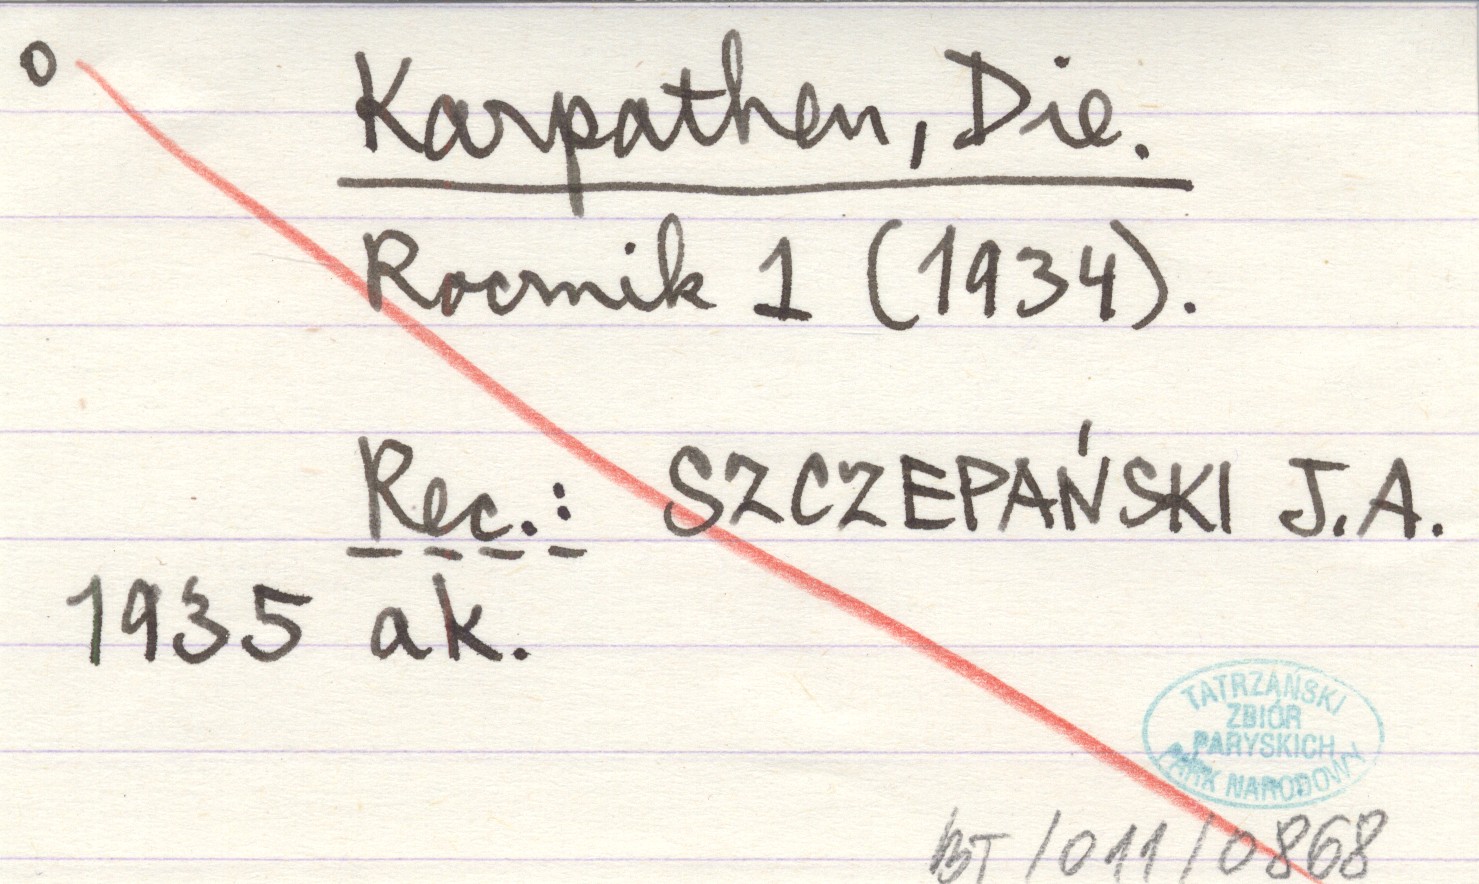 o Karpathen, Die.
Rocznik 1 (1934).
Rec.: SZCZEPAŃSKI J.A.
1935 ak.
TATRZAŃSKI
ZBIÓR
PARYSKICH
PARK NARODOWY
BT/011/0868